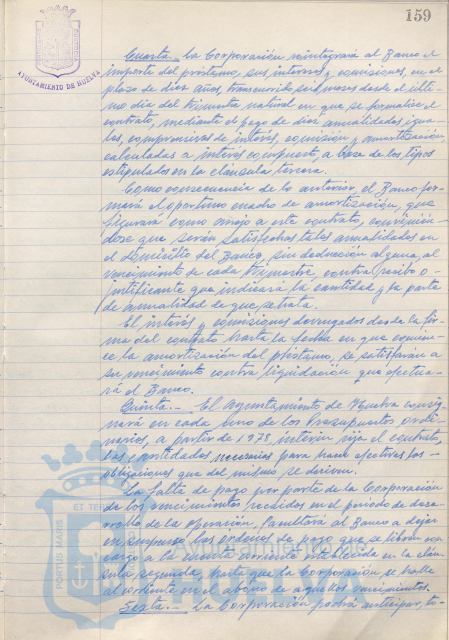 159
AYUNTAMIENTO DE HUELVA
Cuarta.- La Corporación reintegrará al Banco el
importe del préstamo, sus intereses y comisiones, en el
plazo de diez años, transcurrido seis meses desde el últi-
mo día del trimestre natural en que se formalice el
contrato, mediante el pago de diez anualidades igua-
les, comprensivas de interés, comisión y amortización,
calculadas a interés compuesto, a base de los tipos
estipulados en la cláusula tercera.
Como consecuencia de lo anterior, el Banco for-
mará el oportuno cuadro de amortización, que
figurará como anejo a este contrato, convinién-
dose que serán satisfechas tales anualidades en
el domicilio del Banco, sin deducción alguna, al
vencimiento de cada trimestre, contra recibo o
justificante que indicará la cantidad y la parte
de anualidad de que se trata.
El interés y comisiones devengados desde la fir-
ma del contrato hasta la fecha en que comien-
ce la amortización del préstamo, se satisfarán a
su vencimiento contra liquidación que efectua-
rá el Banco.
Quinta.- El Ayuntamiento de Huelva consig-
nará en cada uno de los Presupuestos ordi-
narios, a partir de 1978, interin rija el contrato,
las cantidades necesarias para hacer efectivas las
obligaciones que del mismo se deriven.
La falta de pago por parte de la Corporación
de los vencimientos recibidos en el período de desa-
rrollo de la operación, facultará al Banco a dejar
en suspenso las órdenes de pago que se libren con
cargo a la cuenta corriente establecida en la cláu-
sula segunda, hasta que la Corporación se halle
al corriente en el abono de aquellos vencimientos.
Sexta.- La Corporación podrá anticipar, to-
PORTUS MARIS
ET TER
Ayuntamiento de
HUELVA